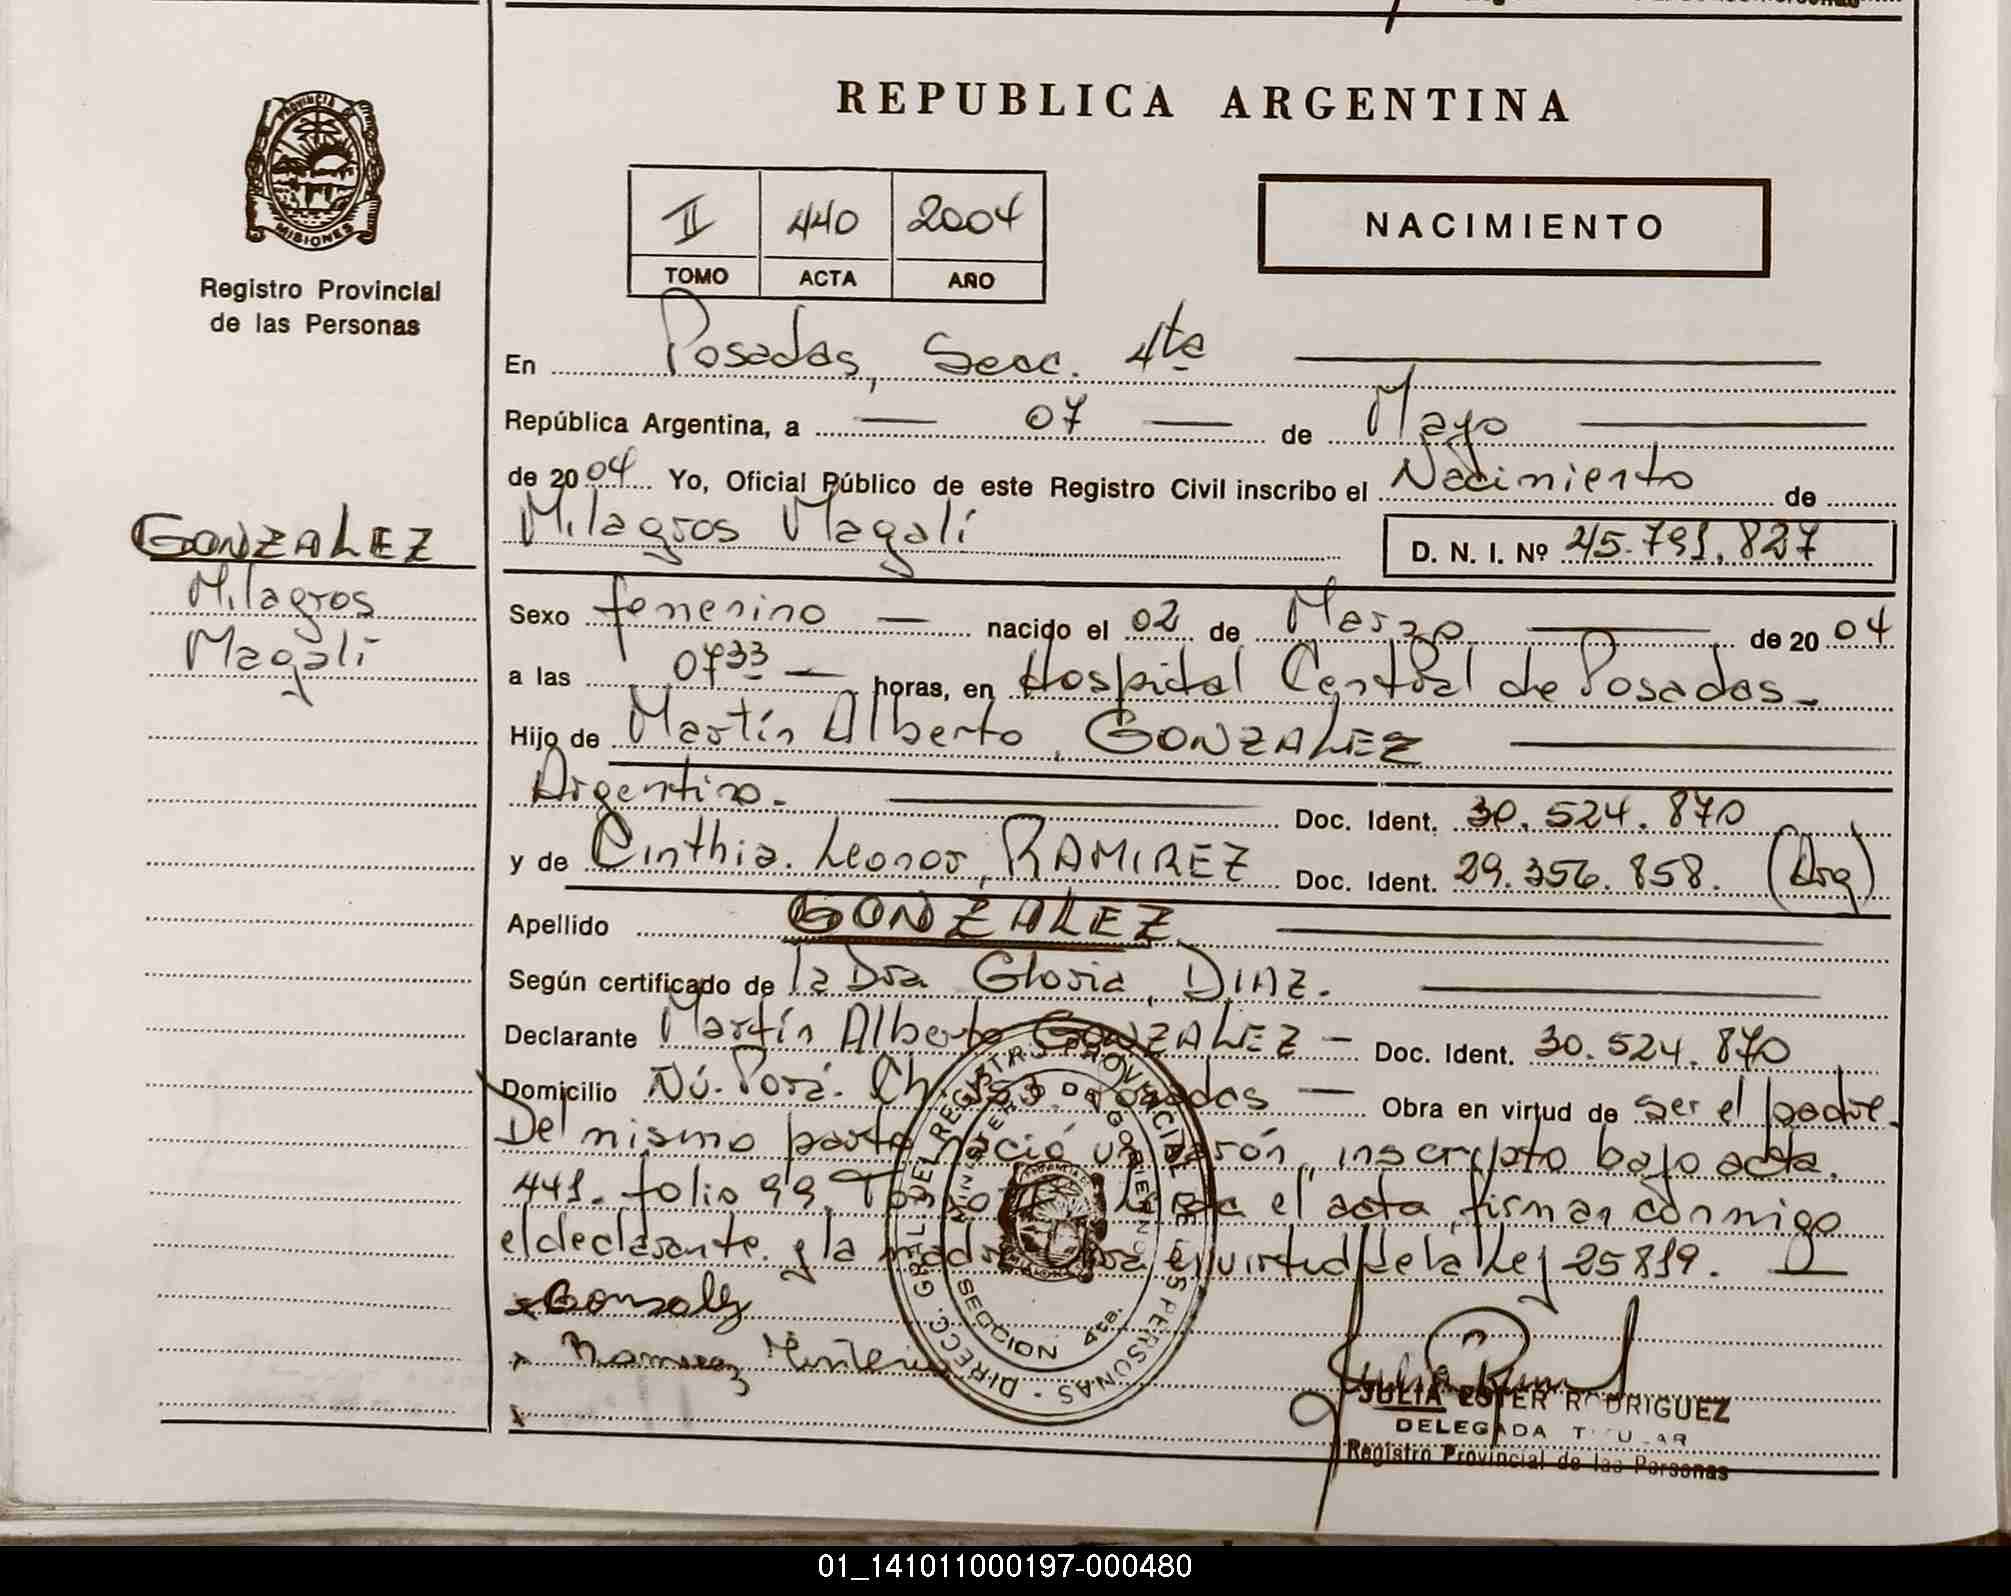 REPUBLICA ARGENTINA
PROVINCIA
MISIONES
Registro Provincial
de las Personas
II 440 2004
TOMO ACTA AÑO
NACIMIENTO
En Posadas, Secc. 4ta
República Argentina, a 07 de Mayo
de 2004 Yo, Oficial Público de este Registro Civil inscribo el Nacimiento de
Milagros Magalí D. N. I. Nº 45.791.827
GONZALEZ
Milagros
Magalí
Sexo femenino nacido el 02 de Marzo de 2004
a las 0733 horas, en Hospital Central de Posadas
Hijo de Martín Alberto, GONZALEZ
Argentino. Doc. Ident. 30.524.870
y de Cinthia Leonor, RAMIREZ Doc. Ident. 29.356.858. (Arg)
Apellido GONZALEZ
Según certificado de la Dra Gloria, DIAZ.
Declarante Martín Alberto GONZALEZ Doc. Ident. 30.524.870
Domicilio Ñú-Porá. Ch 153. Posadas Obra en virtud de ser el padre.
Del mismo parto nació un varón, inscrypto bajo acta.
441. folio 99. Leída el acta, firman conmigo
el declarante y la madre en virtud de la Ley 25819.
Gonzalez
Ramirez
DIRECC. GRAL DEL REGISTRO PROVINCIAL DE LAS PERSONAS
MINISTERIO DE GOBIERNO
SECCION 4ta.
JULIA ESTER RODRIGUEZ
DELEGADA TITULAR
Registro Provincial de las Personas
01_141011000197-000480